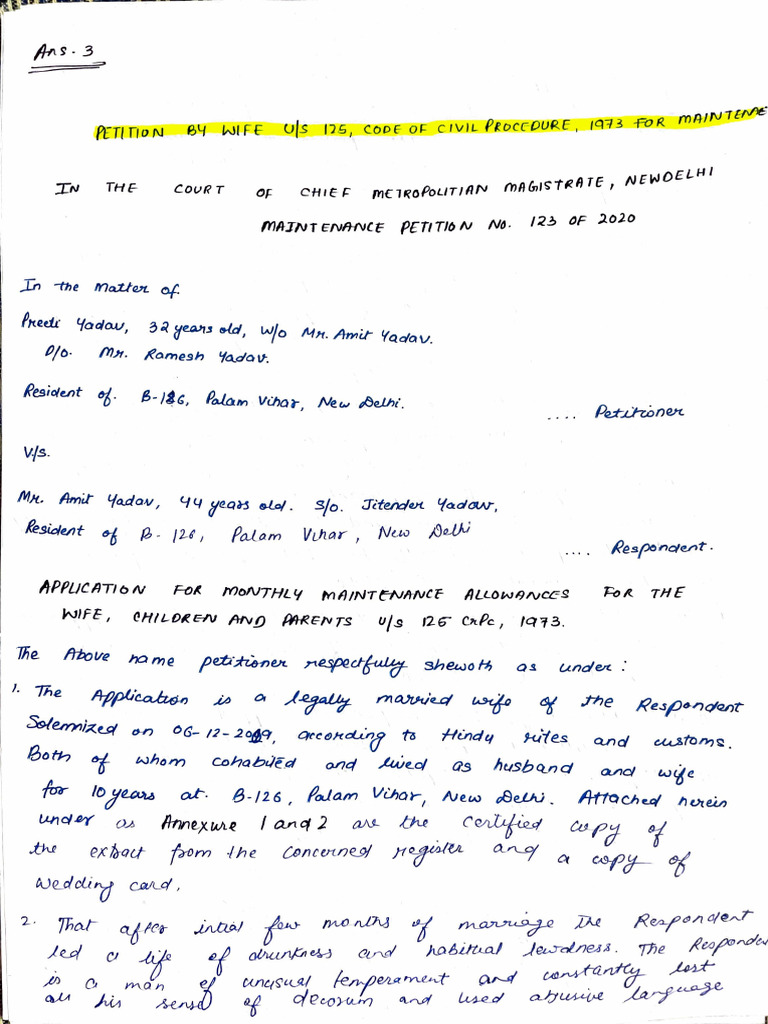 Ans. 3
PETITION BY WIFE U/S 125, CODE OF CIVIL PROCEDURE, 1973 FOR MAINTENE
IN THE COURT OF CHIEF METROPOLITIAN MAGISTRATE, NEWDELHI
MAINTENANCE PETITION No. 123 OF 2020
In the Matter of.
Preeti Yadav, 32 years old, W/o Mr. Amit Yadav.
D/o. Mr. Ramesh Yadav.
Resident of. B-126, Palam Vihar, New Delhi.
.... Petitioner
V/s.
Mr. Amit Yadav, 44 years old. S/o. Jitender Yadav,
Resident of B-126, Palam Vihar, New Delhi
.... Respondent.
APPLICATION FOR MONTHLY MAINTENANCE ALLOWANCES FOR THE
WIFE, CHILDREN AND PARENTS U/s 125 CrPc, 1973.
The Above name petitioner respectfully shewoth as under:
1. The Application is a legally married wife of the Respondent
Solemnized on 06-12-2009, according to Hindu rites and customs.
Both of whom cohabited and lived as husband and wife
for 10 years at. B-126, Palam Vihar, New Delhi. Attached herein
under as Annexure 1 and 2 are the certified copy of
the extract from the concerned register and a copy of
wedding card.
2. That after intial few months of marriage the Respondent
led a life of drunkness and habitual lewdness. The Responde
is a man of unusual temperament and constantly lost
all his sense of decorum and used abusive language